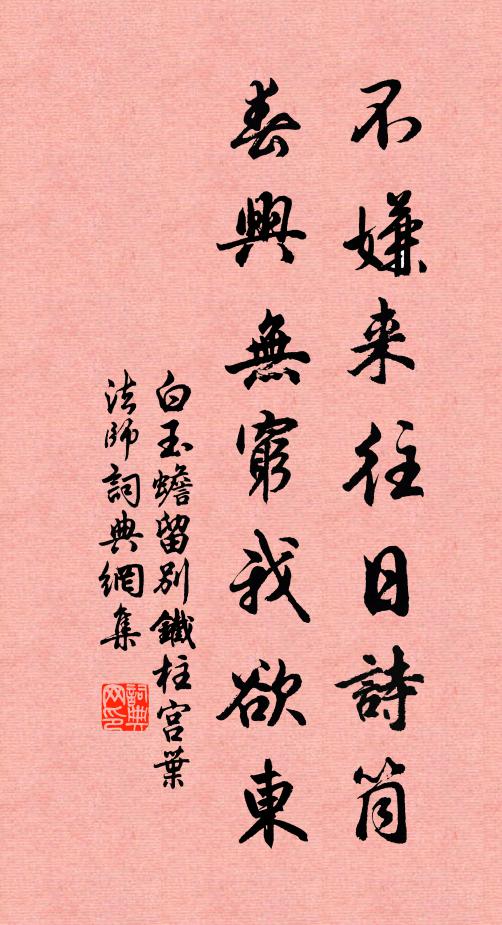 不嫌来往日詩筒
春興無窮我欲東
白玉蟾留別鐵柱宮葉
法師詞典網集
詞典
网印